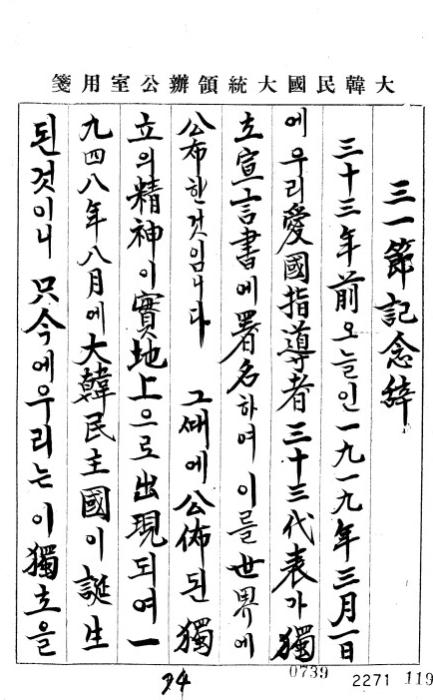 大韓民國大統領辦公室用箋
三一節記念辭
三十三年前오늘인一九一九年三月一日
에우리愛國指導者三十三代表가獨
立宣言書에署名하여이를世界에
公布한것입니다 그때에公佈된獨
立의精神이實地上으로出現되여一
九四八年八月에大韓民主國이誕生
된것이니 只今에우리는이獨立을
94
0739
2271
119